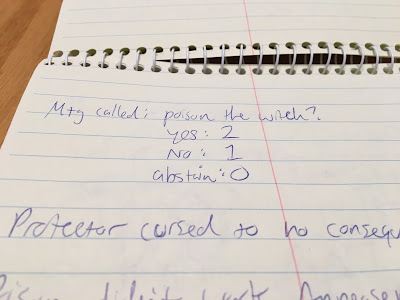 Mtg called: poison the witch?
Yes: 2
No: 1
abstain: 0
Protector cursed to no consequ